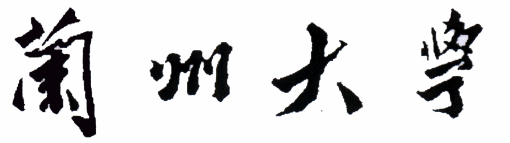 蘭州大學